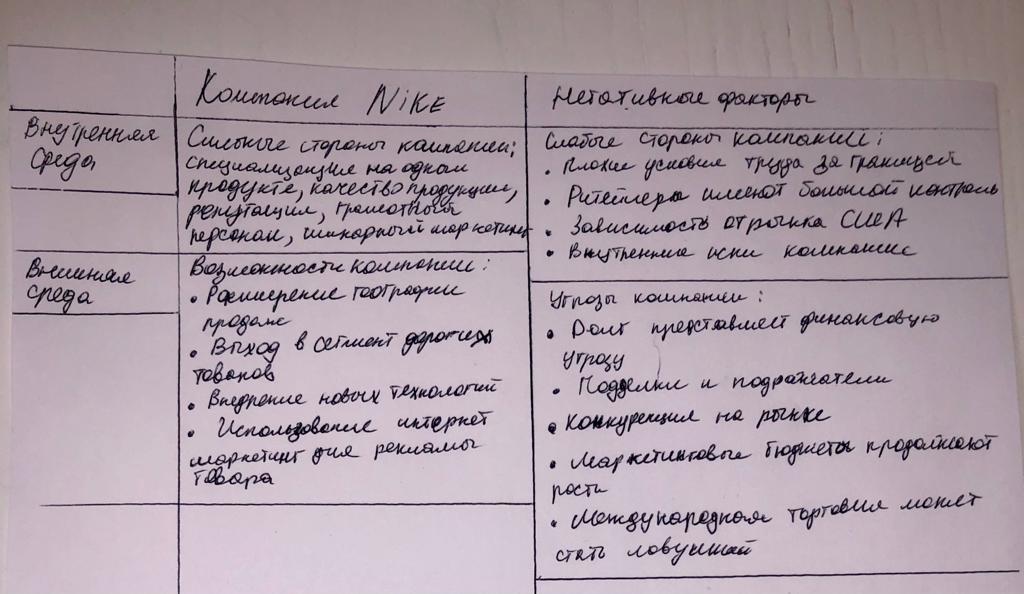 Компания NIKE
Негативные факторы
Внутренняя
среда
Сильные стороны компании:
специализация на одном
продукте, качество продукции,
репутация, грамотный
персонал, шикарный маркетинг
Слабые стороны компании:
• Плохие условия труда за границей
• Ритейлеры имеют большой контроль
• Зависимость от рынка США
• Внутренние иски компании
Внешняя
среда
Возможности компании:
• Расширение географии
продаж
• Выход в сегмент дорогих
товаров
• Внедрение новых технологий
• Использование интернет
маркетинг для рекламы
товара
Угрозы компании:
• Долг представляет финансовую
угрозу
• Подделки и подражатели
• Конкуренция на рынке
• Маркетинговые бюджеты продолжают
расти
• Международная торговля может
стать ловушкой